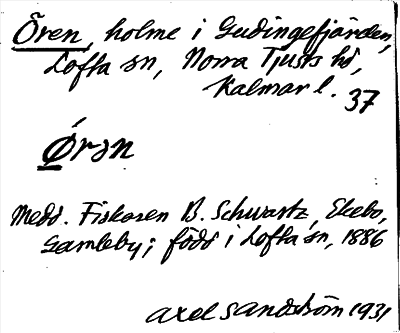 Ören, holme i Gudingefjärden,
Lofta sn, Norra Tjusts hd,
Kalmar l. 37
Ørən
Medd. Fiskaren B. Schwartz, Ekebo,
Gamleby; född i Lofta sn, 1886
Axel Sandström 1931